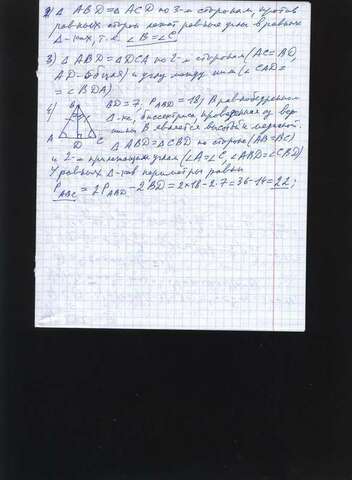 2) Δ ABD = Δ ACD по 3-м сторонам, против
равных сторон лежат равные углы в равных
Δ-ках, т.е. ∠B=∠C
3) Δ ABD = Δ DCA по 2-м сторонам (AC=BD,
AD-общая) и углу между ними (∠CAD=
=∠BDA)
4) BD=7, P ABD =18, В равнобедренном
Δ-ке, биссектриса, проведенная из вер-
шины B является высотой и медианой.
B
A D C
Δ ABD = Δ CBD по стороне (AB=BC)
и 2-м прилежащим углам (∠A=∠C, ∠ABD=∠CBD)
У равных Δ-ков периметры равны
P ABC = 2P ABD - 2BD = 2×18-2·7=36-14=22;